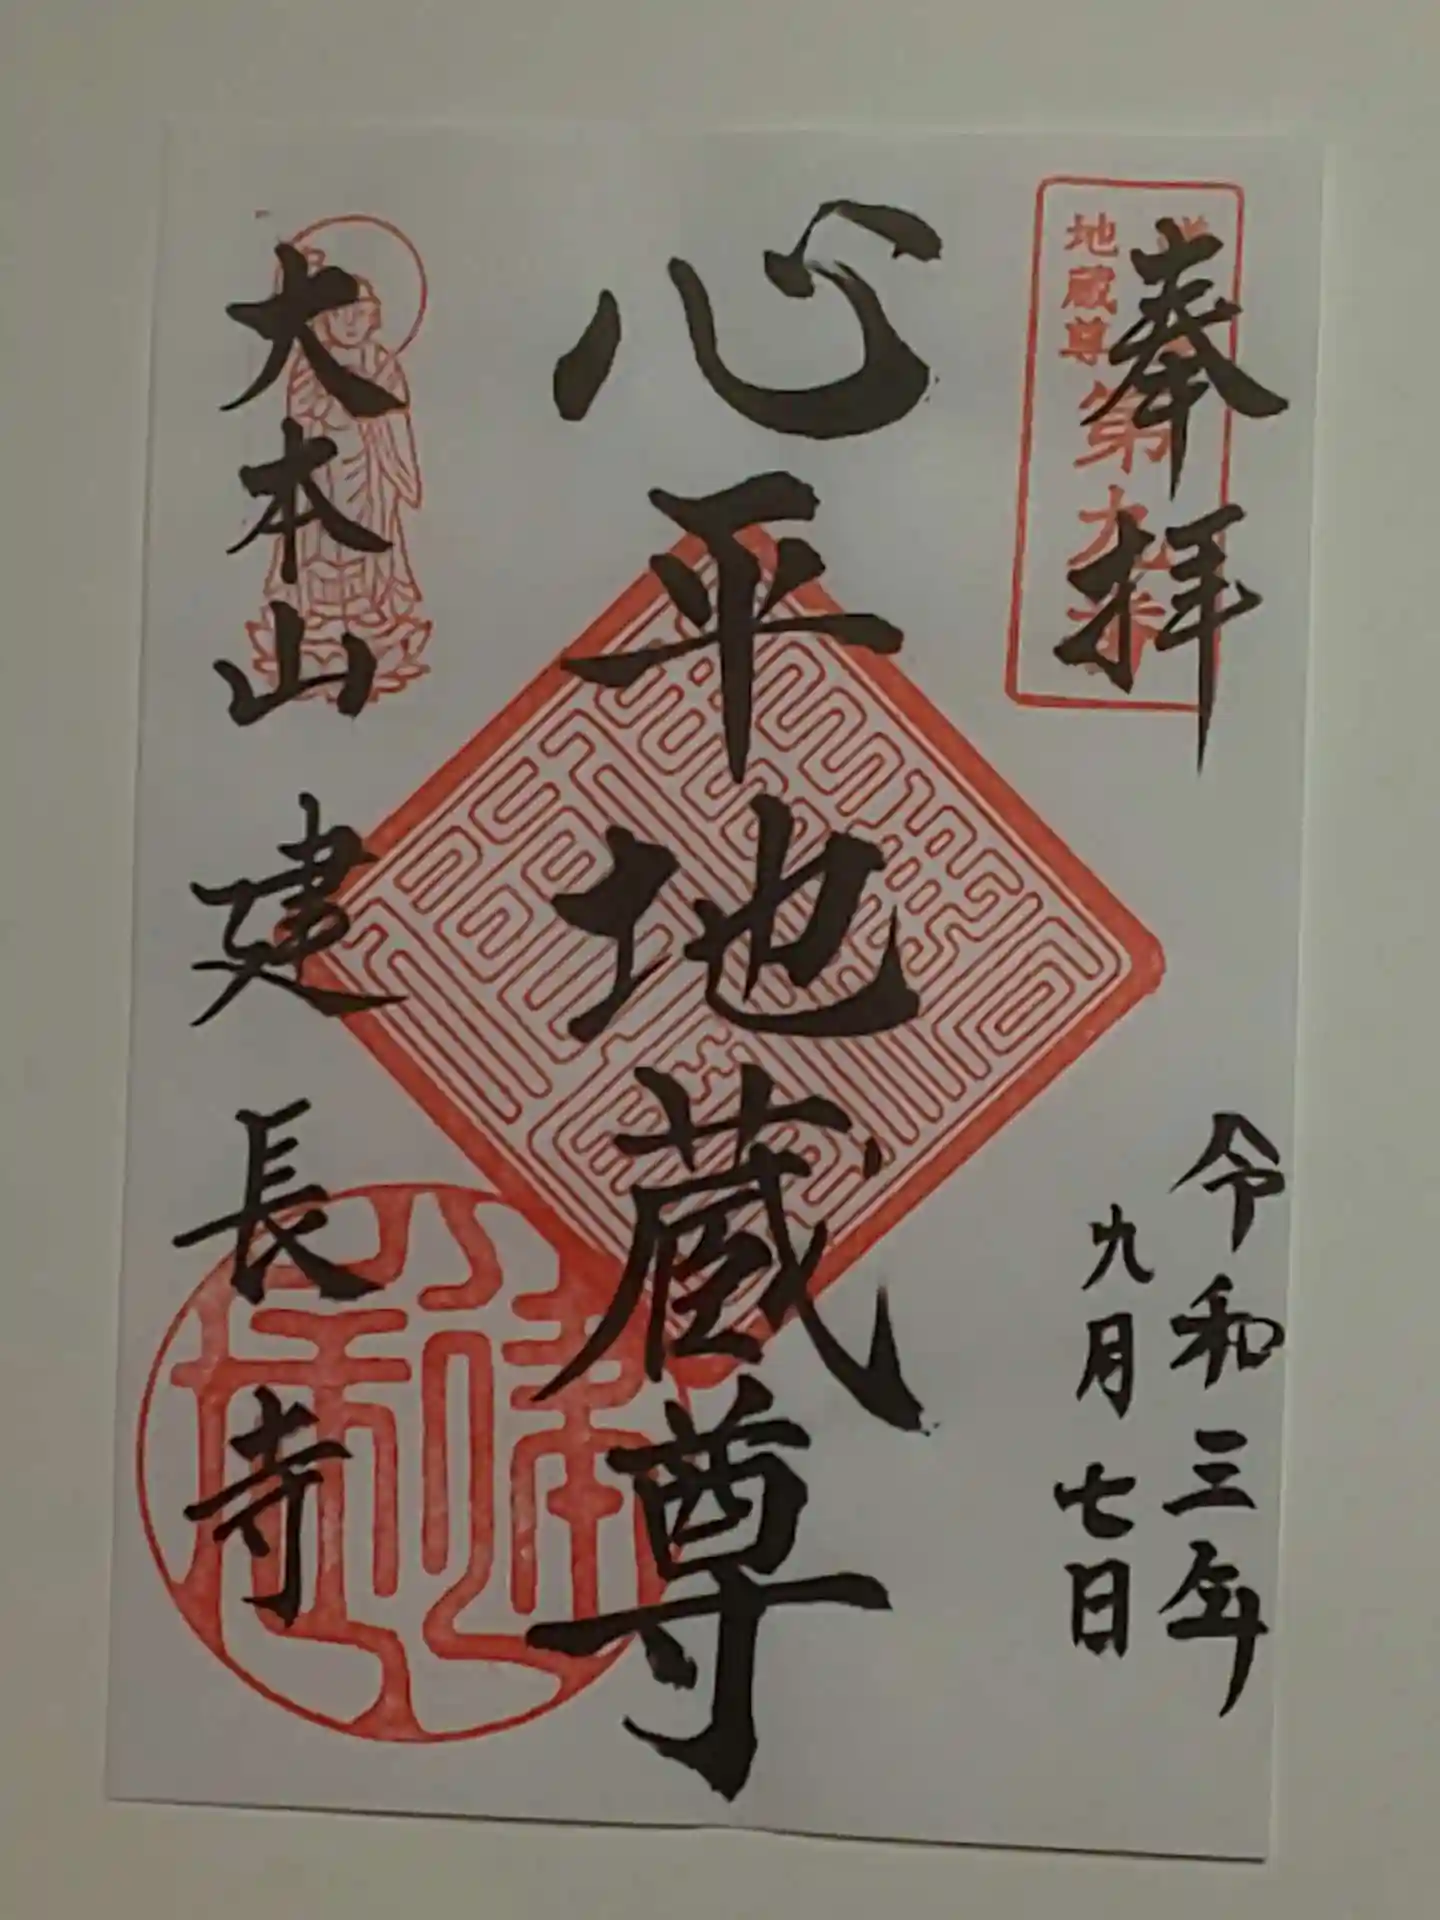 奉拝
地蔵尊 第九
令和三年
九月七日
心平地蔵尊
大本山 建長寺